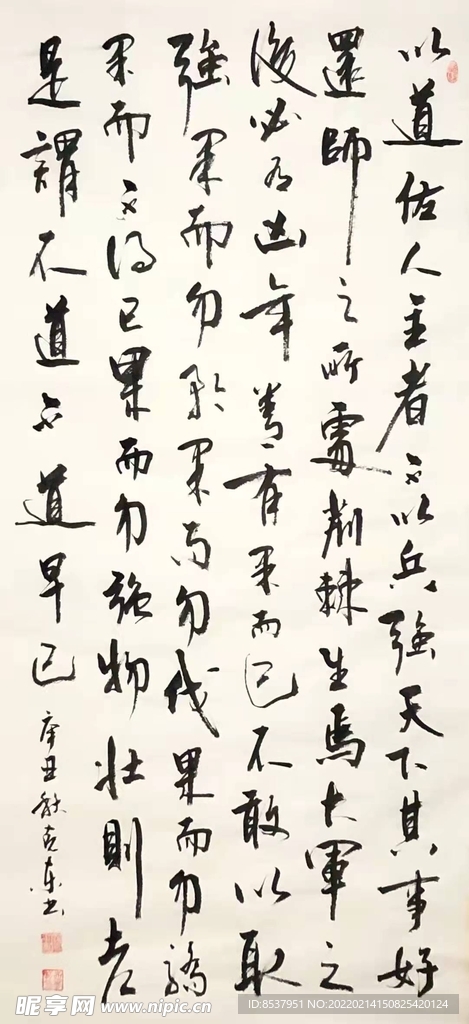 以道佐人主者不以兵強天下其事好
還師之所處荊棘生焉大軍之
後必有凶年善有果而已不敢以取
強果而勿矜果而勿伐果而勿驕
果而不得已果而勿強物壯則老
是謂不道不道早已
辛丑秋克东书
昵享网 www.nipic.cn
ID:8537951 NO:20220214150825420124